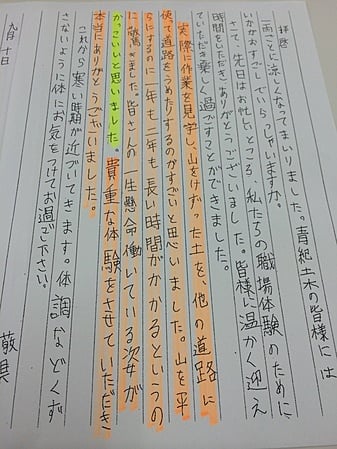 拝啓
一雨ごとに涼しくなってまいりました。青絶土木の皆様には
いかがおすごしでいらっしゃいますか。
さて、先日はお忙しいところ、私たちの職場体験のために、
時間をいただき、ありがとうございました。皆様に温かく迎え
ていただき楽しく過ごすことができました。
実際に作業を見学し、山をけずった土を、他の道路に
使って道路をうめたりするのがすごいと思いました。山を平
らにするのに一年も二年も長い時間がかかるというの
に驚きました。皆さんの一生懸命働いている姿が
かっこいいと思いました。貴重な体験をさせていただき
本当にありがとうございました。
これから寒い時期が近づいてきます。体調などくず
さないように体にお気をつけてお過ごし下さい。
敬具
九月十日